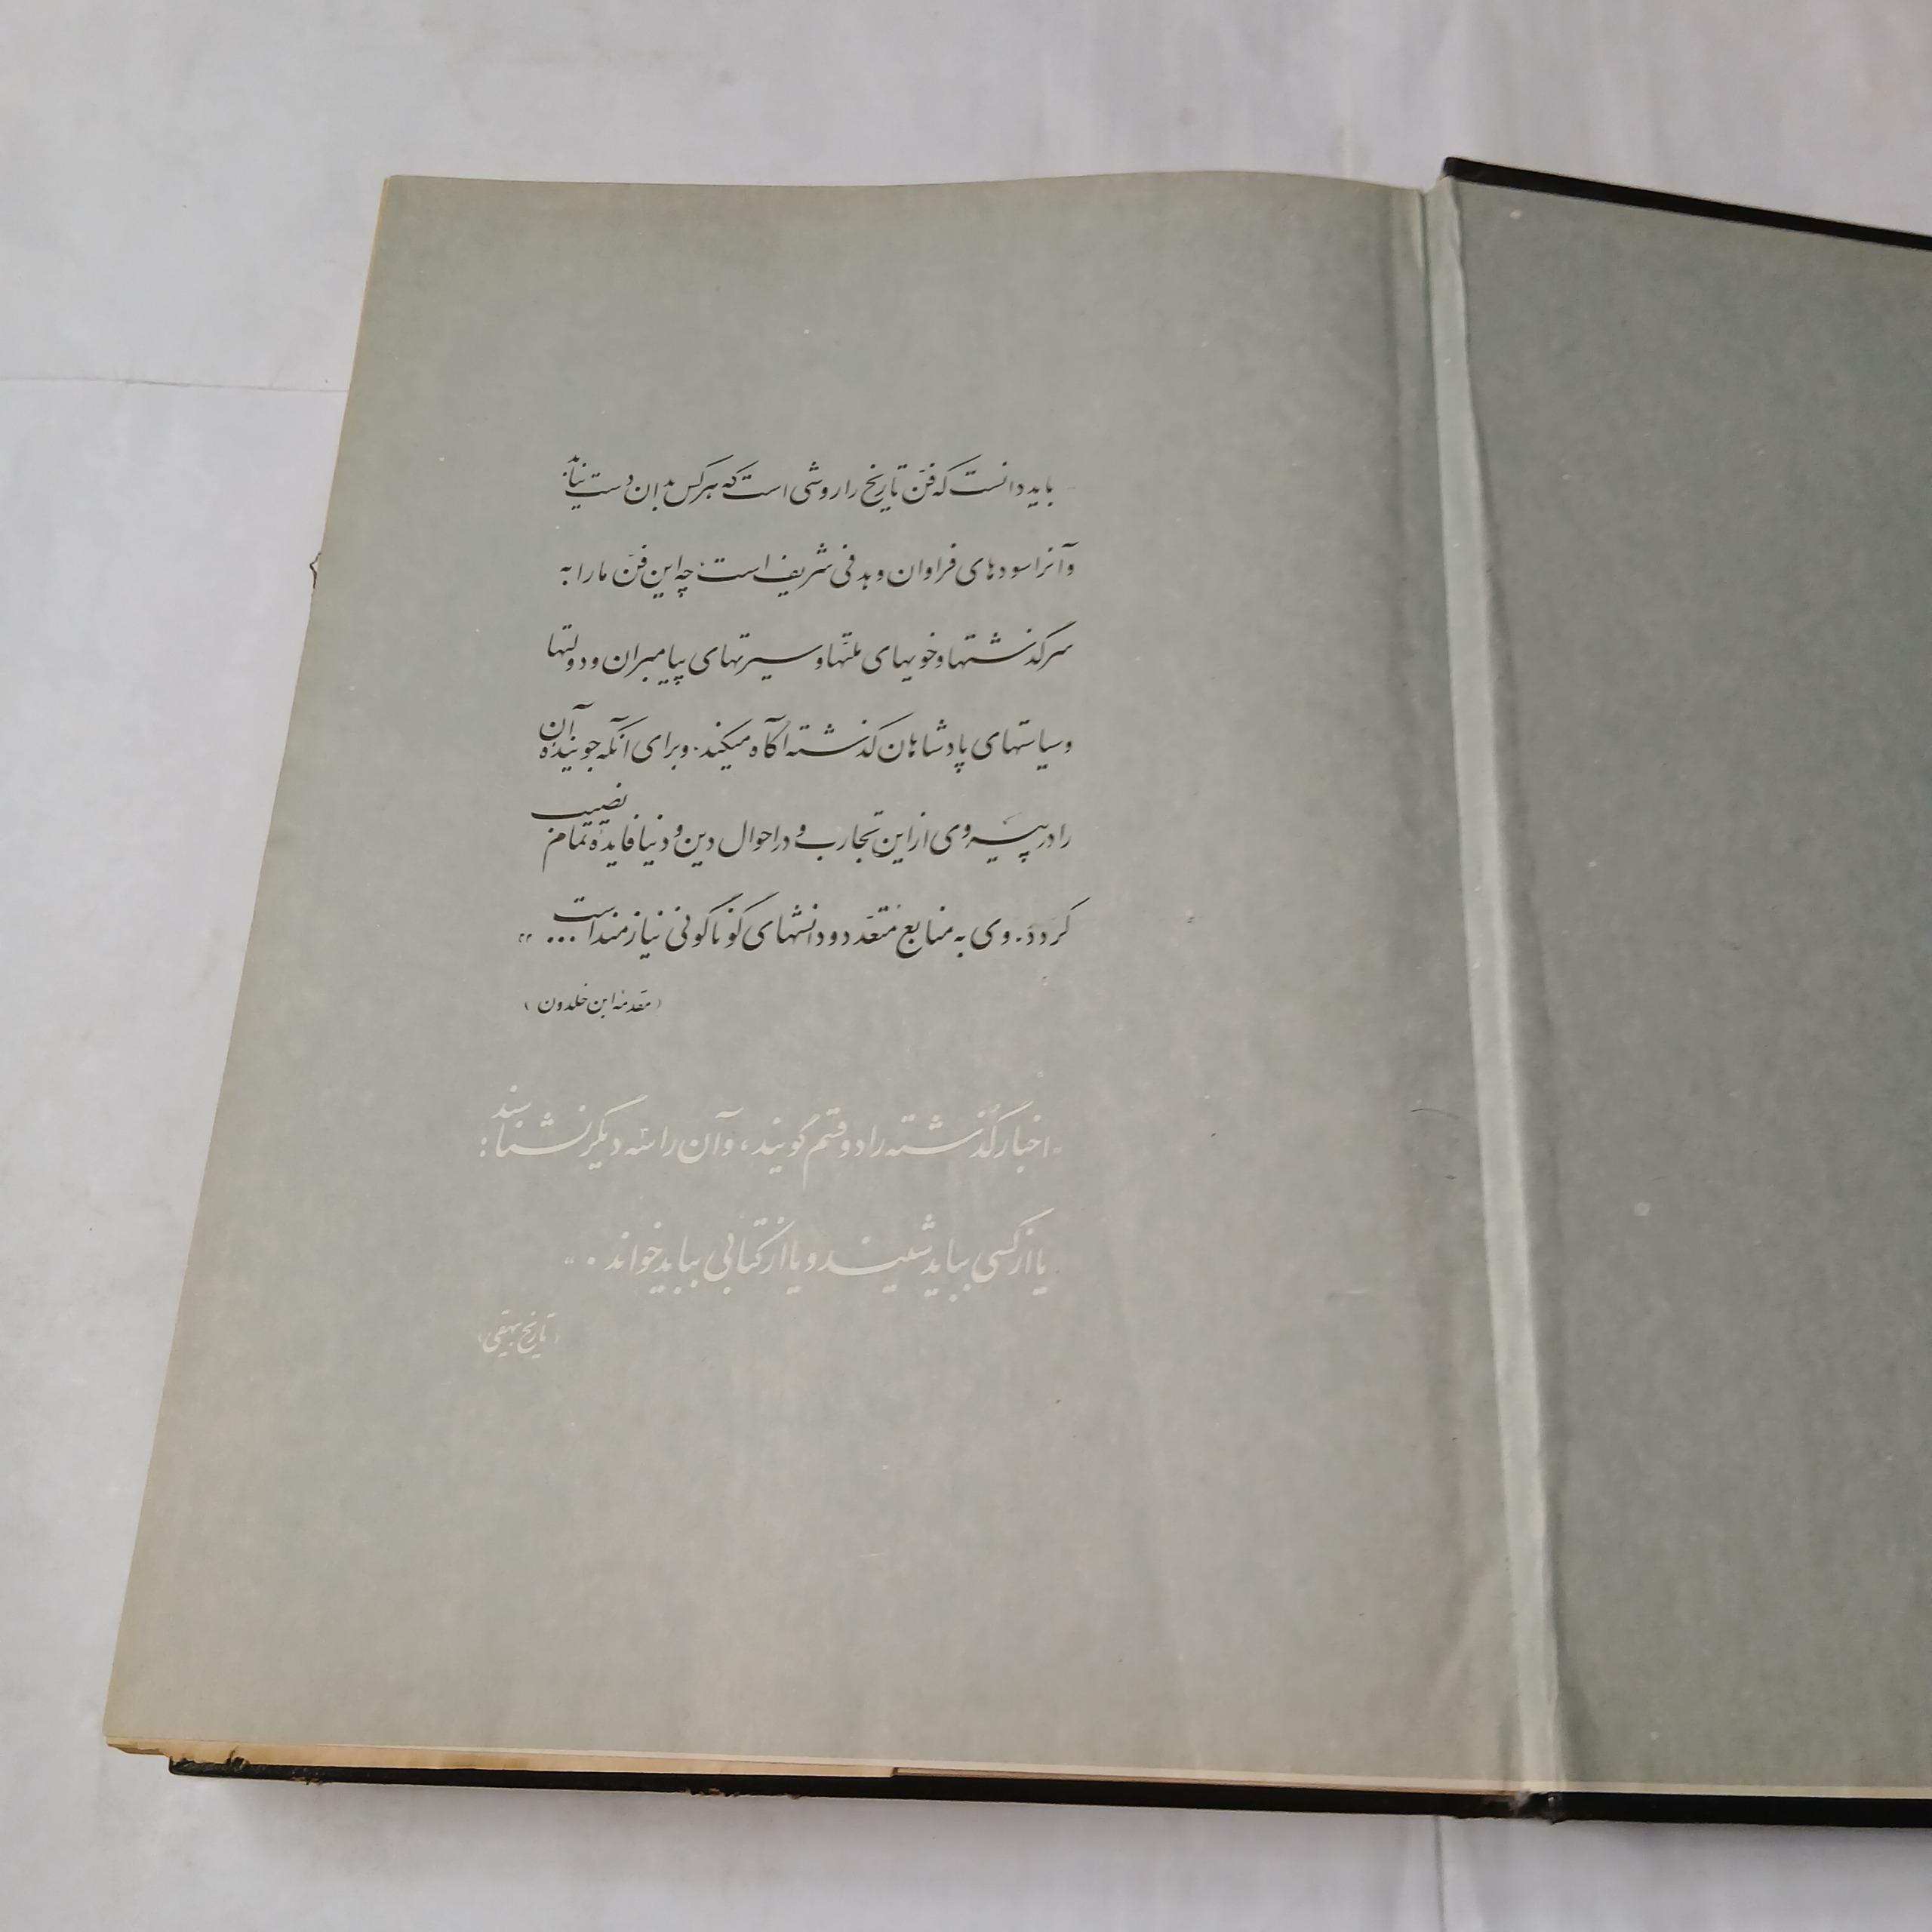 باید دانست که فن تاریخ را روشی است که هر کس بدان دست نیابد
و آنرا سودهای فراوان و هدفی شریف است؛ چه این فن ما را به
سرگذشتها و خویهای ملتها و سیرتهای پیامبران و دولتها
و سیاستهای پادشاهان گذشته آگاه میکند. و برای آنکه جوینده آن
را در پیروی از این تجارب و در احوال دین و دنیا فایده تمام نصیب
گردد. وی به منابع متعدد و دانشهای گوناگونی نیازمند است ... "
(مقدمه ابن خلدون)
- اخبار گذشته را دو قسم گویند، و آن را سه دیگر نشناسند :
یا از کسی بباید شنید و یا از کتابی بباید خواند . "
(تاریخ بیهقی)